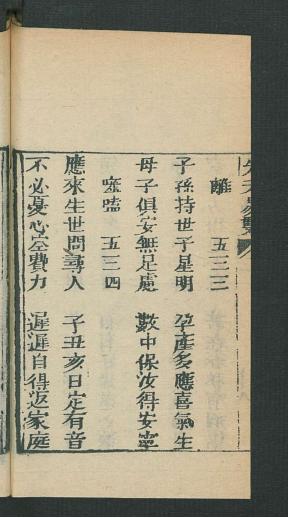 離 五三三
子孫持世子星明 孕產多應喜氣生
母子俱安無足慮 數中保汝得安寧
噬嗑 五三四
應來生世問尋人 子丑亥日定有音
不必憂心空費力 遲遲自得返家庭